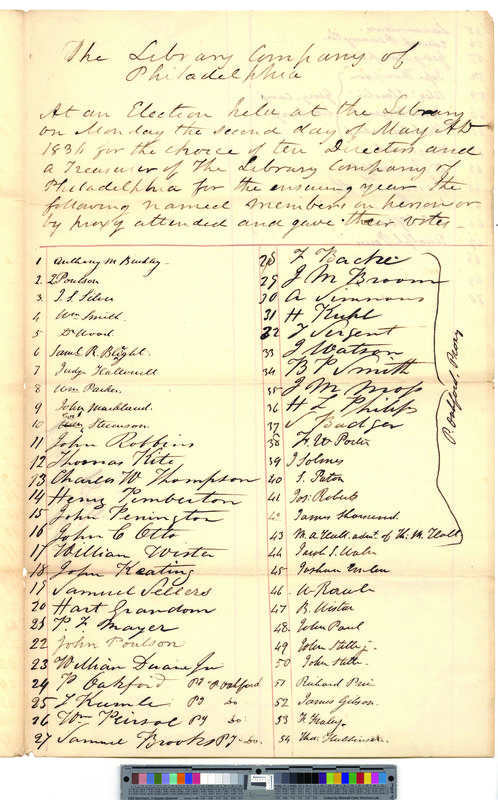 The Library Company of
Philadelphia
At an Election held at the Library
on Monday the second day of May AD
1836 for the choice of ten Directors and
a Treasurer of The Library Company of
Philadelphia for the ensuing year the
following named members in person or
by proxy attended and gave their votes
1 Anthony M Buckley
2 Z Poulson
3
4 Wm Smith
5 Dr Wood
6 Saml R. Blight
7 Judge Hallowell
8 Wm Parker
9 John Markland
10 Stevenson
11 John Robbins
12 Thomas Kite
13 Charles W Thompson
14 Henry Pemberton
15 John Penington
16 John C Otto
17 William Wister
18 John Keating
19 Samuel Sellers
20 Hart Grandom
21 P F Mayer
22 John Poulson
23 William Duane Jr
24 P Oakford Py P Oakford
25 Py Do.
26 Wm Peirsol Py Do.
27 Samuel Brooks Py Do.
28 F Bache
29 J M Broom
30 A Simmons
31 H Kuhl
32 T Sergent
33 J Watson
34 B P Smith
35 J M Moss
36 H L Philips
37 Badger
38 F. W Porter
39 J Solmes
40 S. Paton
41 Jos. Roberts
42 James Thornend
43 M. A Hall. admt. of Th. M. Hall
44 Jacob S. Waln
45 Joshua Emlen
46 W Rawle
47 B. Wistar
48 John Paul
49 John Stille Jr
50 John Stille
51 Richard Price
52 James Gibson
53
54 Tho. Hutchinson
P. Oakford. Proxy